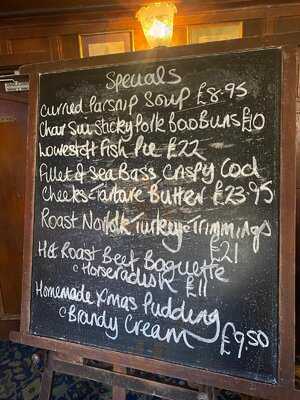 Specials
Curried Parsnip Soup £8.95
Char Sui Sticky Pork Bao Buns £10
Lowestoft Fish Pie £22
Fillet of Sea Bass Crispy Cod
Cheeks-Tartare Butter £23.95
Roast Norfolk Turkey-Trimmings
£21
Hot Roast Beef Baguette
c Horseradish £11
Homemade Xmas Pudding
c Brandy Cream £9.50